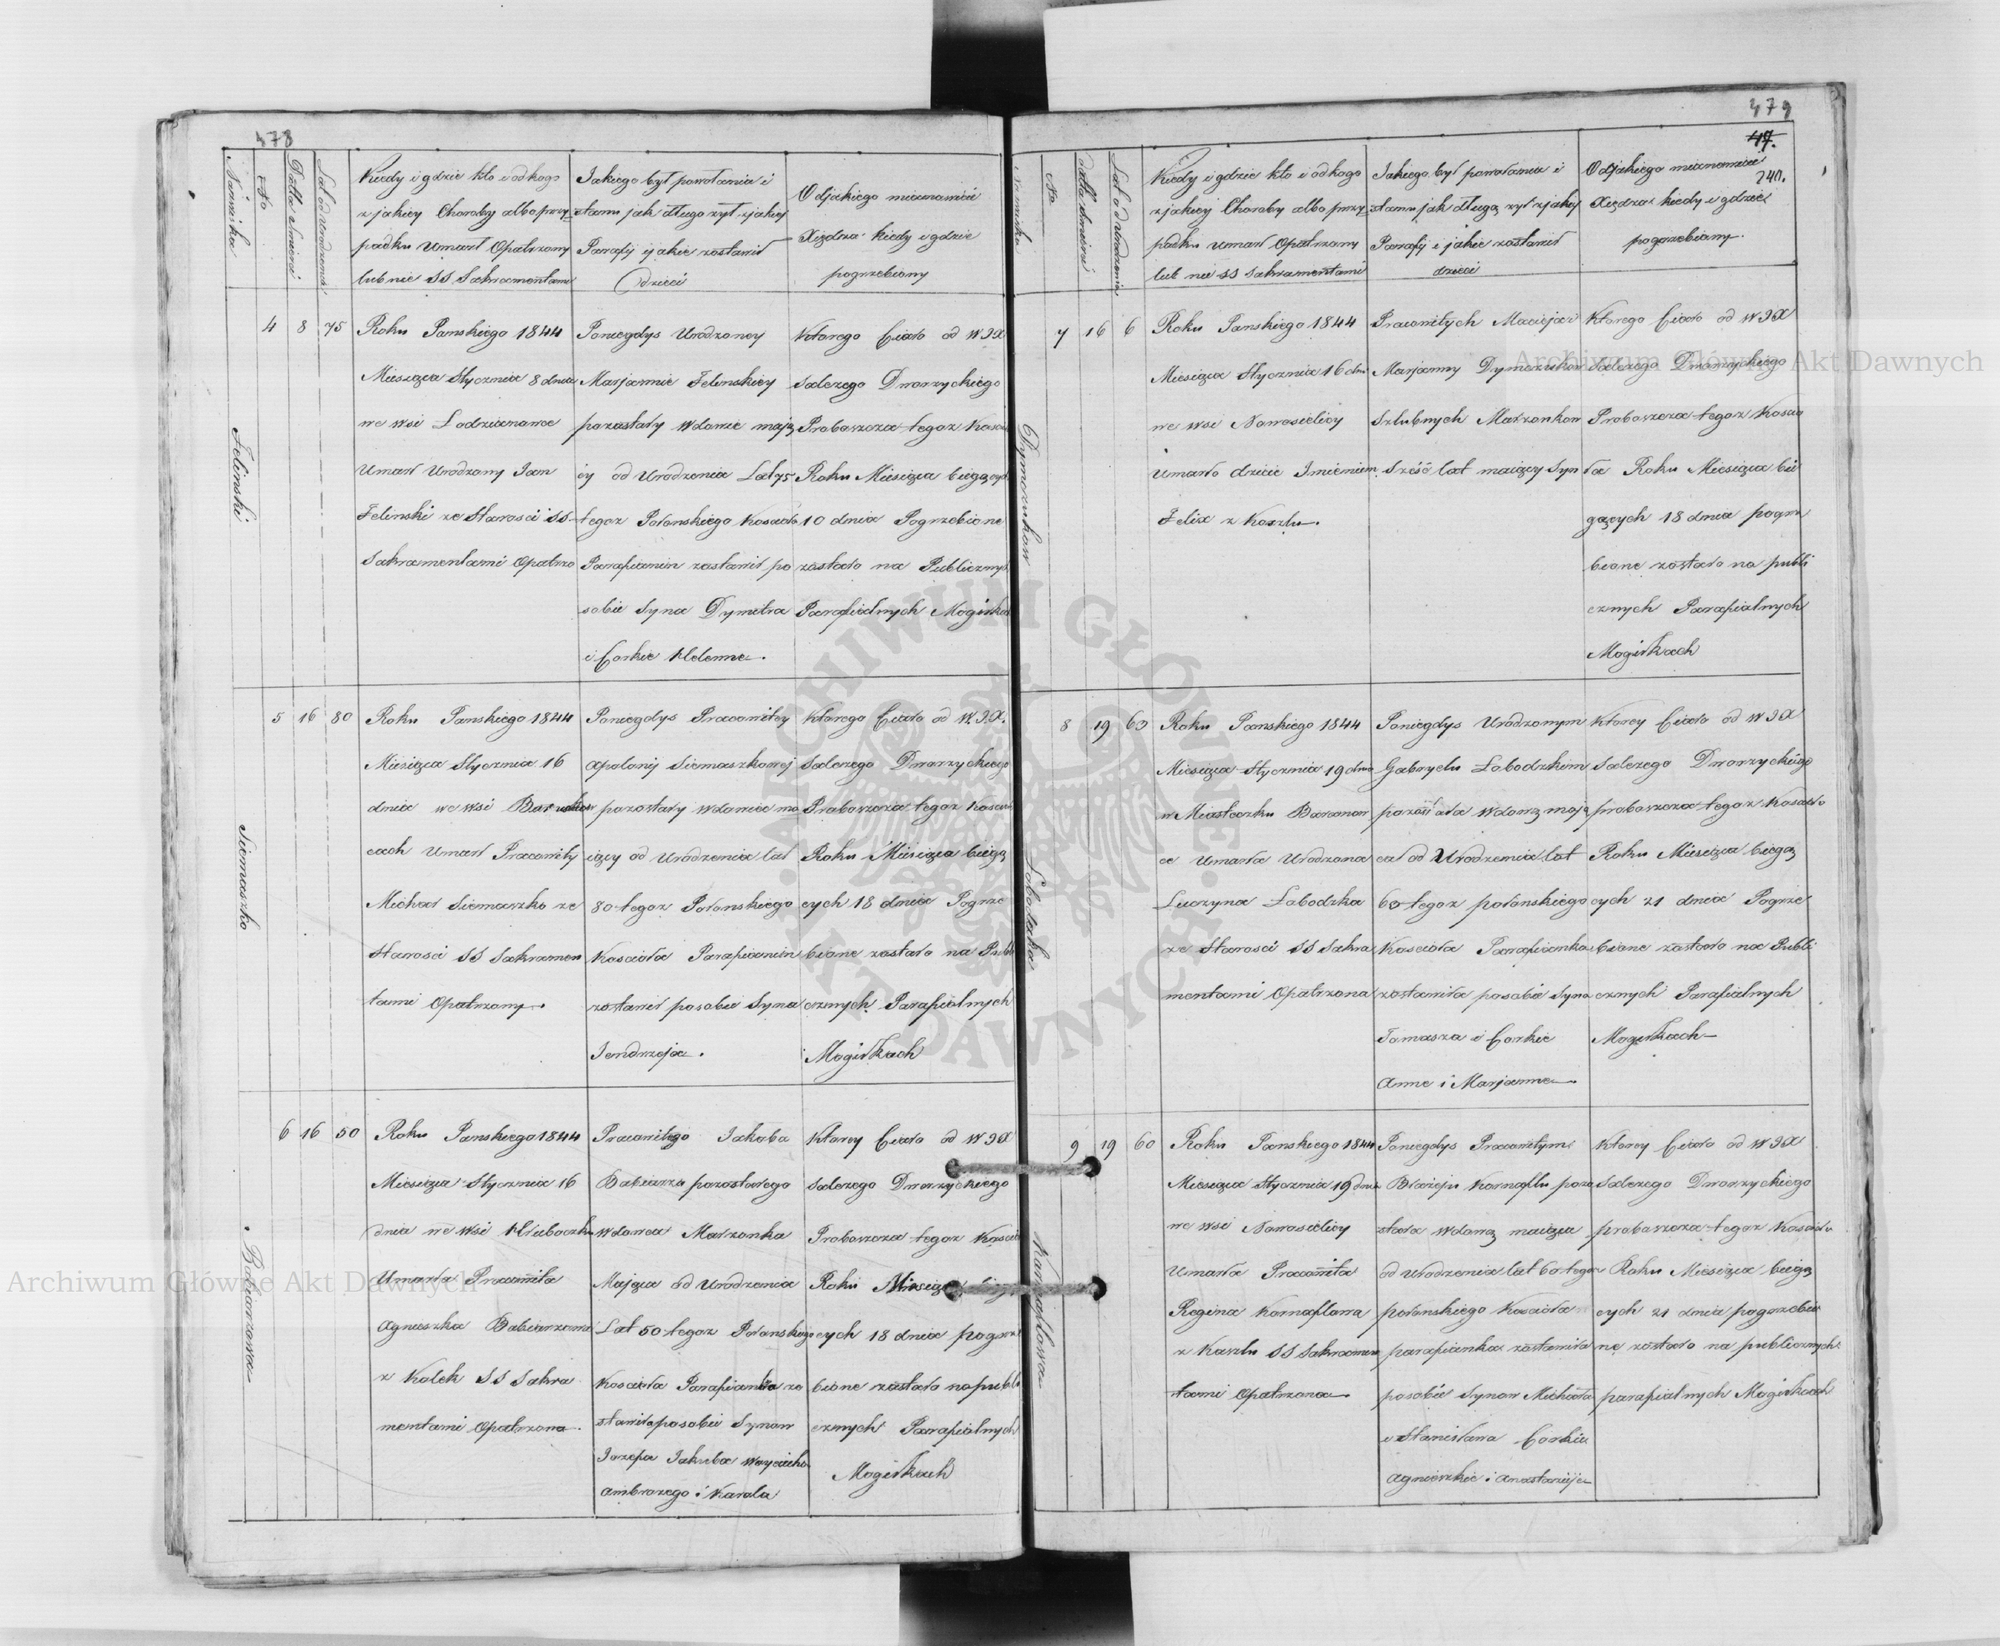 478
Nazwiska
No
Datta Smierci
Lat od Urodzenia
Kiedy i gdzie kto i od kogo
z jakiey Choroby albo przy
padku Umarł Opatrzony
lub nie SS Sakramentami
Jakiego był powołania i
stanu jak długo zył z jakiey
Parafij y jakie zostawił
Dzieci
Od jakiego mianowicie
Xiędza kiedy i gdzie
pogrzebiony
Felinski
4 8 75
Roku Panskiego 1844
Miesiąca Stycznia 8 dnia
we wsi
Umarł Urodzony Jan
Felinski ze Starosci SS
Sakramentami Opatrzo
Poniegdys Urodzoney
Marjannie Felinskiey
pozostały Wdowie mają
cy od Urodzenia Lat 75
tegoz Połonskiego Koscioła
Parafianin zostawił po
sobie Syna Dymitra
i Corkie Helenne.
Ktorego Ciało od W J X
Salezego Dworzyckiego
Proboszcza tegoz Kosci
Roku Miesiąca biegącyh
10 dnia Pogrzebione
zostało na Publicznyh
Parafialnych Mogiłka
Siemaszko
5 16 80
Roku Panskiego 1844
Miesiąca Stycznia 16
dnia we wsi
cach Umarł Pracowity
Michał Siemaszko ze
Starosci SS Sakramen
tami Opatrzony.
Poniegdys Pracowitey
Apolonij Siemaszkowej
pozostały wdowiec ma
iący od Urodzenia lat
80 tegoz Połonskiego
Koscioła Parafianin
zostawił posobie Syna
Jendrzeja.
Ktorego Ciało od W.J.X.
Salezego Dworzyckiego
Proboszcza tegoz Kosciał
Roku Miesiąca biegą
cych 18 dnia Pogrze
bione zostało na Publi
cznych Parafialnych
Mogiłkach
Babiarzowa
6 16 50
Roku Panskiego 1844
Miesiąca Stycznia 16
dnia we wsi
Umarła Pracowita
Agnieszka Babiarzowa
z Kolek SS Sakra
mentami Opatrzona.
Pracowitego Jakoba
Babiarza pozostałego
wdowca Małzonka
Mająca od Urodzenia
Lat 50 tegoz Połonskiego
Koscioła Parafianka zo
stawiła posobie Synow
Jozefa Jakuba Woyciecha
Ambrozego i Karola
Ktorey Ciało od W J X
Salezego Dworzyckiego
Proboszcza tegoz Kosciał
Roku Miesiąca biegą
cych 18 dnia pogrze
bione zostało na publi
cznych Parafialnych
Mogiłkach
479
47.
240.
Nazwiska
No
Datta Smierci
Lat od Urodzenia
Kiedy i gdzie kto i od kogo
z jakiey Choroby albo przy
padku umarł Opatrzony
lub nie SS Sakramentami
Jakiego był powołania i
stanu jak długo zył z jakiey
Parafij i jakie zostawił
dzieci
Od jakiego mianowicie
Xiędza kiedy i gdzie
pogrzebiony.
Dymczukow
7 16 6
Roku Panskiego 1844
Miesiąca Stycznia 16 dni
we wsi Nowosielicy
Umarło dziecie Imieniem
Felix z Koszlu.
Pracowitych Macieja i
Marjanny Dymczukow
Szlubnych Małzonkow
Sześć lat maiący Syn
Ktorego Ciało od W J X
Salezego Dworzyckiego
Proboszcza tegoz Koscio
ła Roku Miesiąca bie
gących 18 dnia pogrze
bione zostało na publi
cznych Parafialnych
Mogiłkach
Łobodzka
8 19 60
Roku Panskiego 1844
Miesiąca Stycznia 19 dnia
w Miasteczku Baranow
ce Umarła Urodzona
Luczyna Łobodzka
ze Starosci SS Sakra
mentami Opatrzona
Poniegdys Urodzonym
Gabryelu Łobodzkim
pozostała wdową mają
ca od Urodzenia lat
60 tegoz połonskiego
Kosciola Parafianka
zostawiła posobie Syna
Tomasza i Corkie
Anne i Marjanne.
Ktorey Ciało od W J X
Salezego Dworzyckiego
proboszcza tegoz Kosciało
Roku Miesiąca biegą
cych 21 dnia Pogrze
bione zostało na Publi
cznych Parafialnych
Mogiłkach
Karnaflowa
9 19 60
Roku Panskiego 1844
Miesiąca Stycznia 19 dnia
we wsi Nowosielicy
Umarła Pracowita
Regina Karnaflowa
z Kaszlu SS Sakramen
tami Opatrzona
Poniegdys Pracowitym
Błazeju Karnaflu pozo
stała wdową maiąca
od Urodzenia lat 60 tegoz
połonskiego Kosciała
parafianka zostawiła
posobie Synow Michała
i Stanisława Corkie
Agnieszkie i Anastazije
Ktorey Ciało od W J X
Salezego Dworzyckiego
proboszcza tegoz Kosciału
Roku Miesiąca biegą
cych 21 dnia pogrzebio
ne zostało na publicznych
parafialnych Mogiłkach
Archiwum Główne Akt Dawnych
Archiwum Główne Akt Dawnych
ARCHIWUM GŁÓWNE AKT DAWNYCH